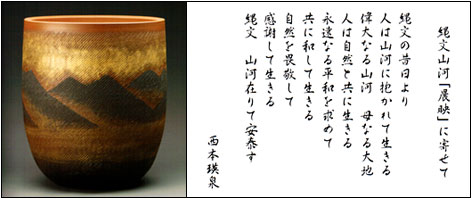 縄文山河「晨映」に寄せて
縄文の昔日より
人は山河に抱かれて生きる
偉大なる山河　母なる大地
人は自然と共に生きる
永遠なる平和を求めて
共に和して生きる
自然を畏敬して
感謝して生きる
縄文　山河在りて安泰す
西本瑛泉